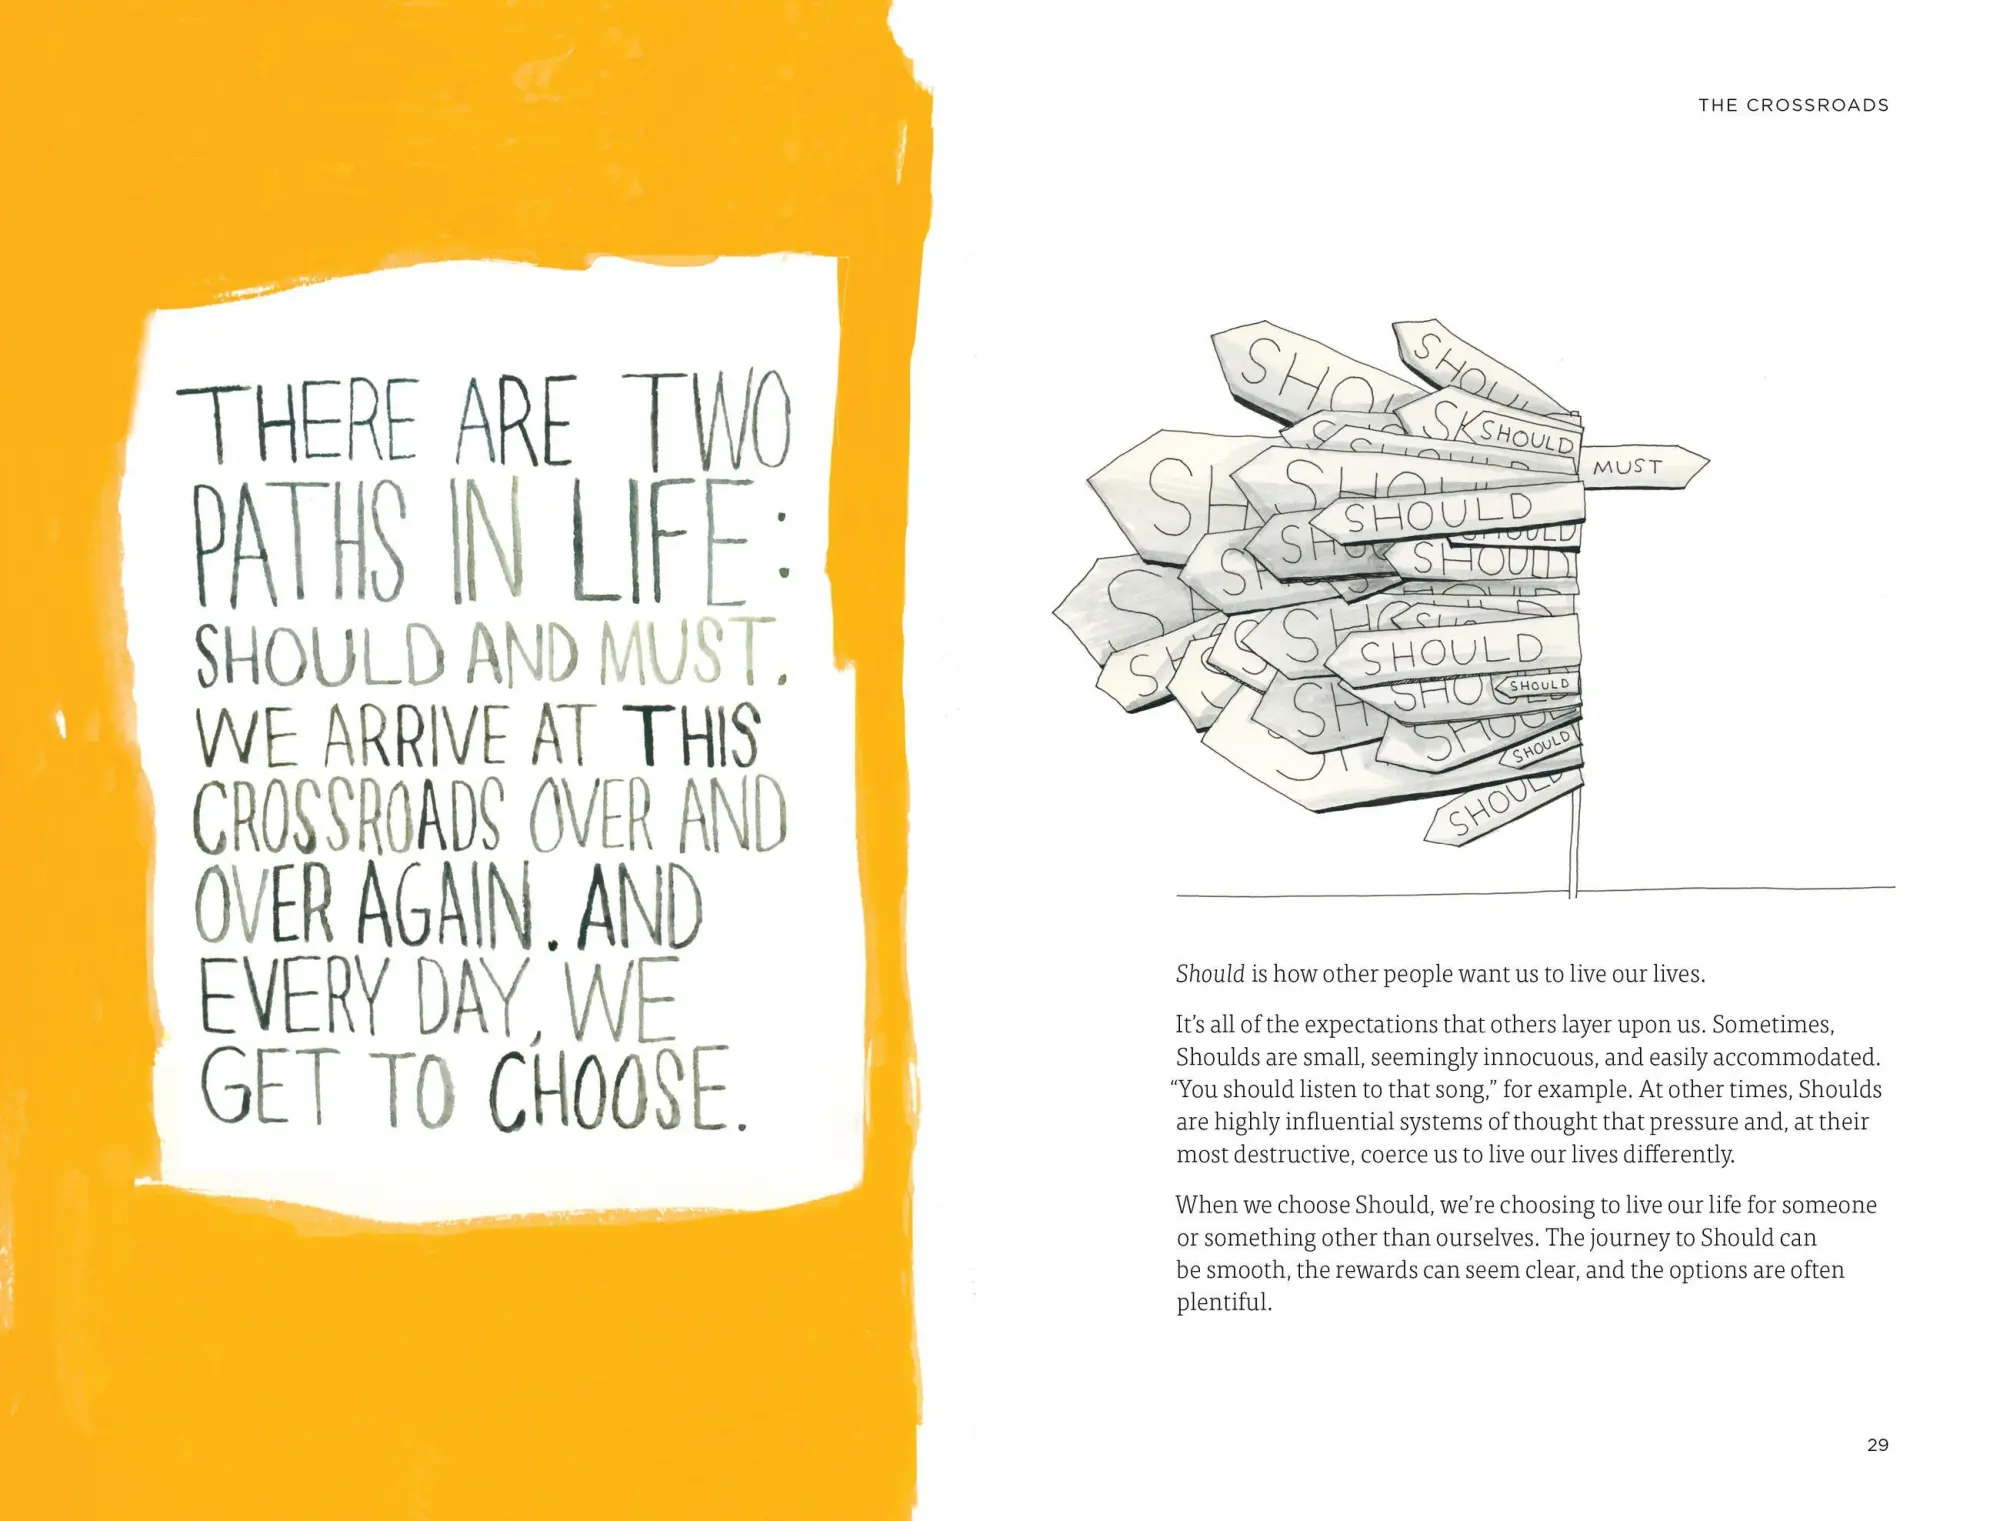 THERE ARE TWO
PATHS IN LIFE:
SHOULD AND MUST.
WE ARRIVE AT THIS
CROSSROADS OVER AND
OVER AGAIN. AND
EVERY DAY, WE
GET TO CHOOSE.
THE CROSSROADS
SHOULD
SHOULD
MUST
SHOULD
SHOULD
SHOULD
SHOULD
SHOULD
SHOULD
Should is how other people want us to live our lives.
It’s all of the expectations that others layer upon us. Sometimes,
Shoulds are small, seemingly innocuous, and easily accommodated.
“You should listen to that song,” for example. At other times, Shoulds
are highly influential systems of thought that pressure and, at their
most destructive, coerce us to live our lives differently.
When we choose Should, we’re choosing to live our life for someone
or something other than ourselves. The journey to Should can
be smooth, the rewards can seem clear, and the options are often
plentiful.
29